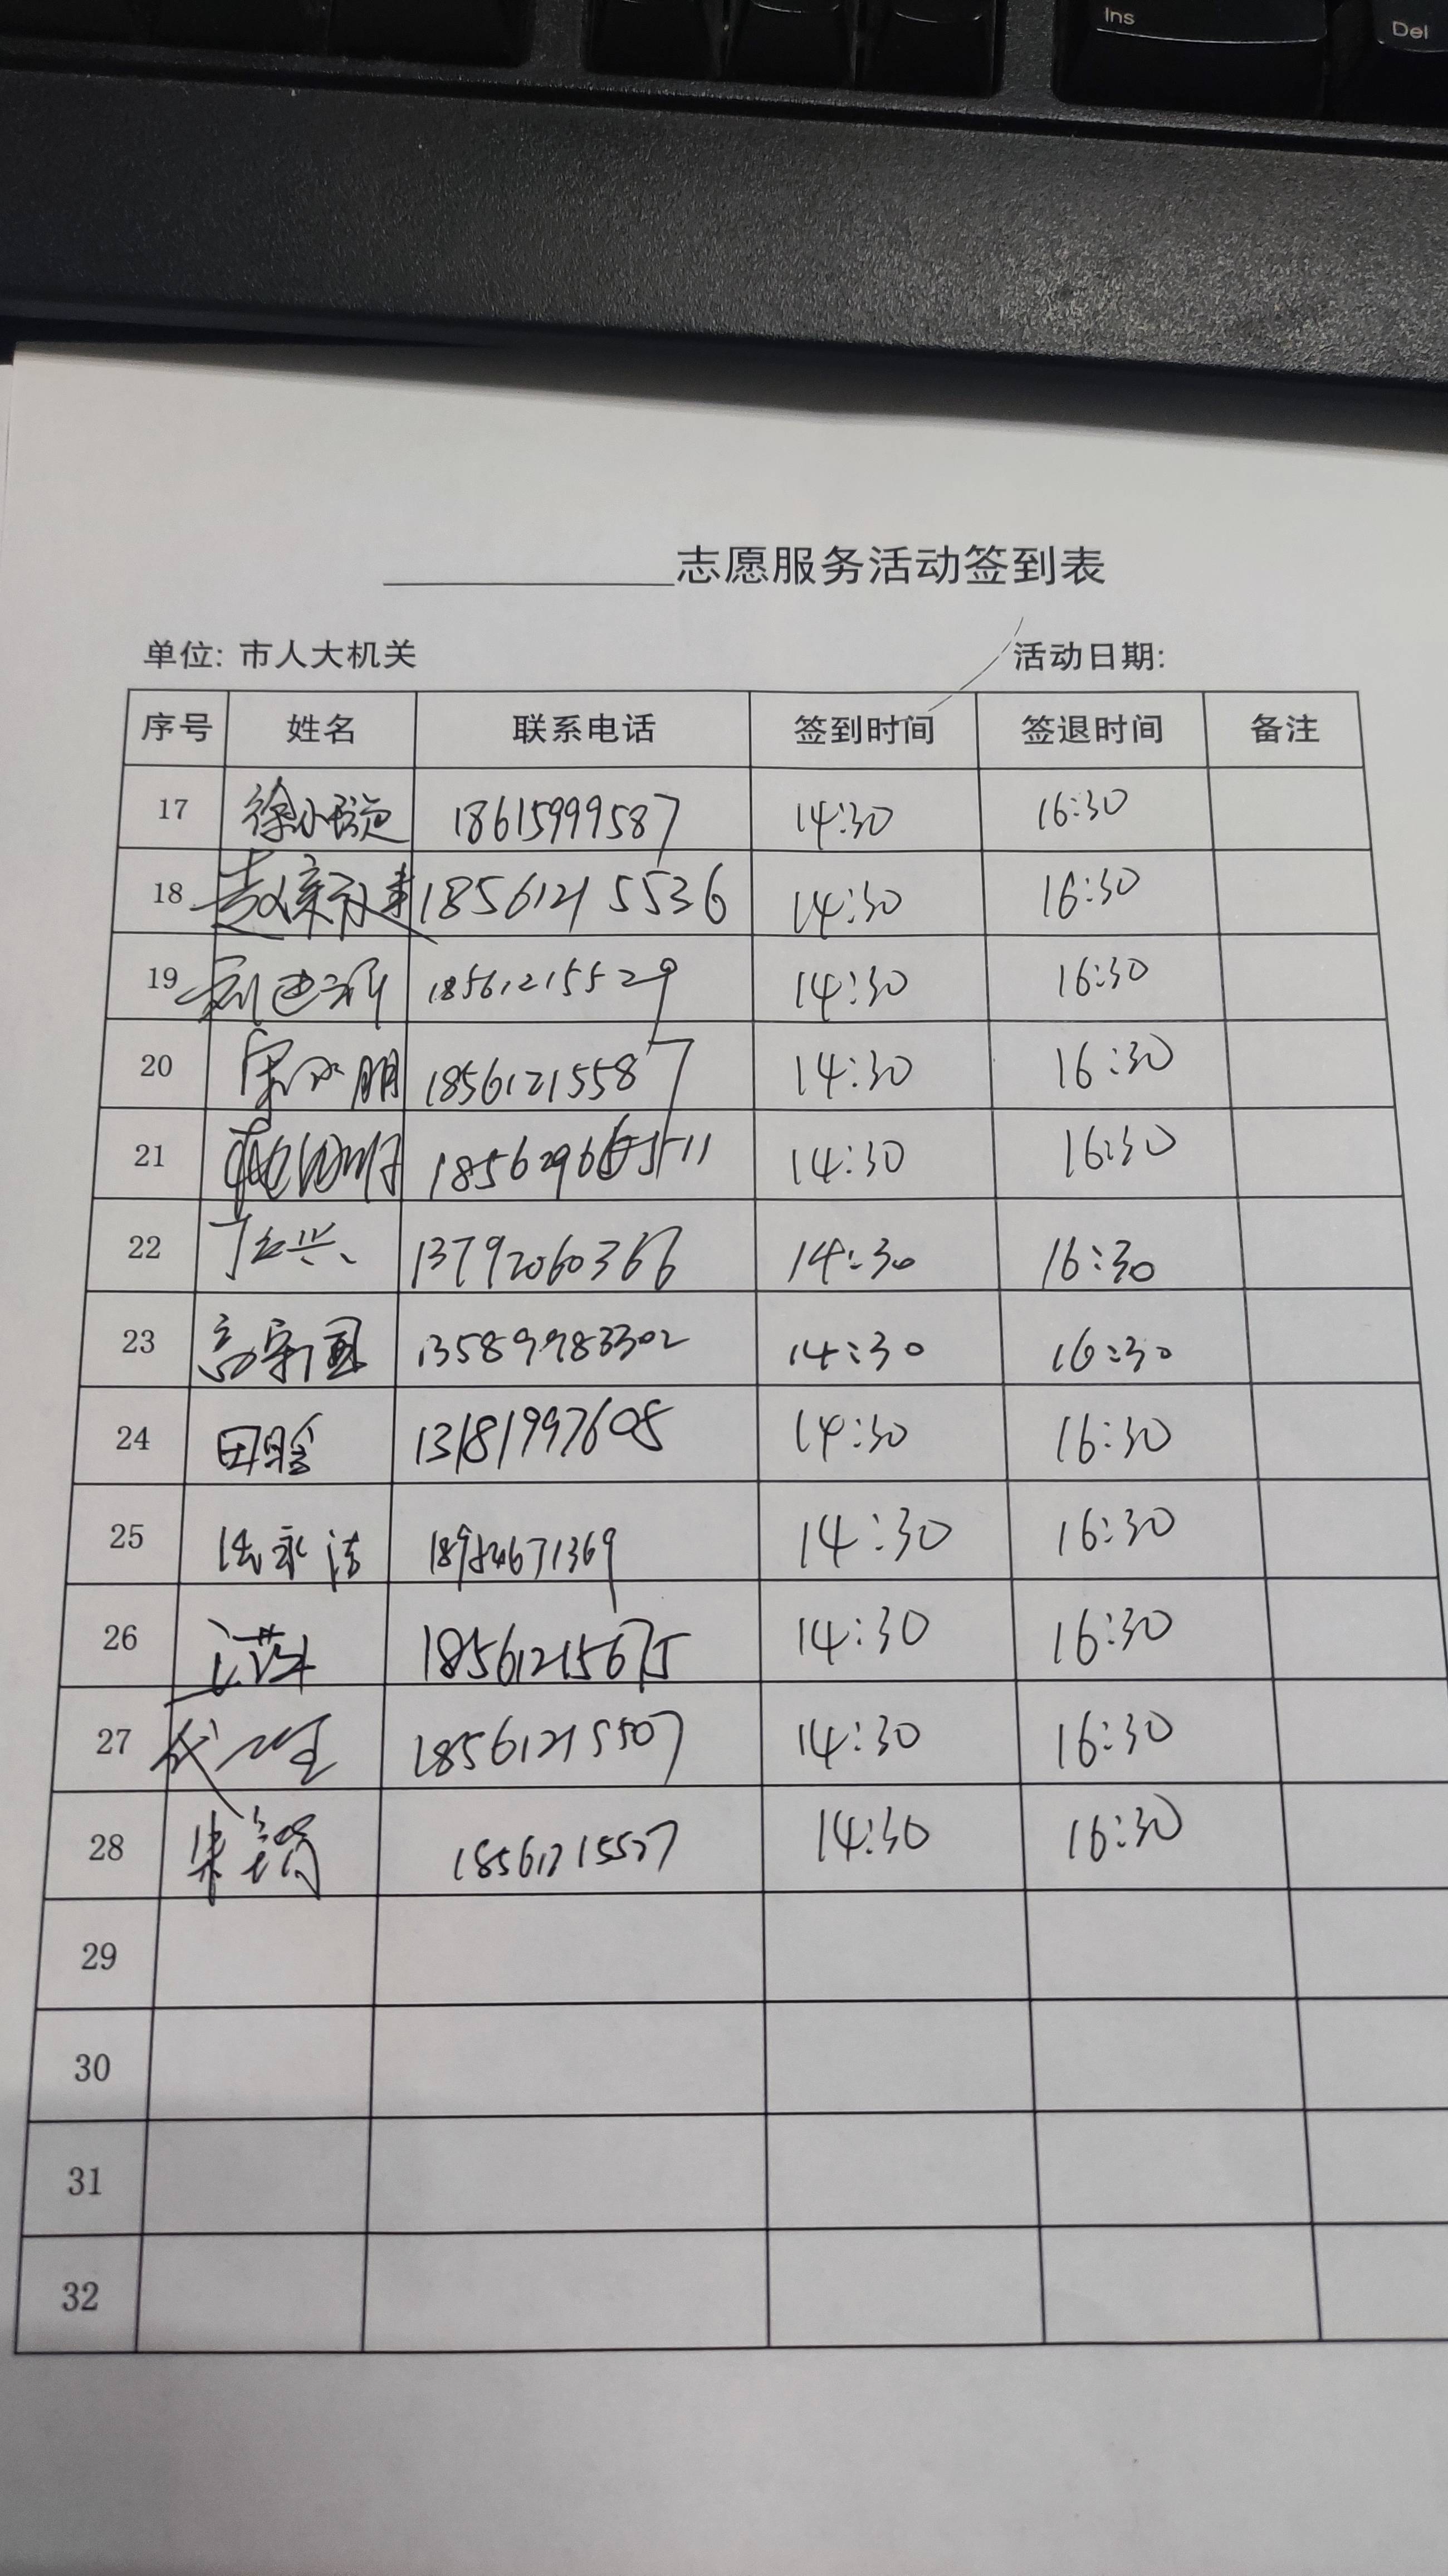 Ins
Del
____________志愿服务活动签到表
单位: 市人大机关 活动日期:
序号 姓名 联系电话 签到时间 签退时间 备注
17 18615999587 14:30 16:30
18 18561215536 14:30 16:30
19 18561215529 14:30 16:30
20 18561215587 14:30 16:30
21 14:30 16:30
22 13792060366 14:30 16:30
23 高宗国 13589983302 14:30 16:30
24 田晗 13181997608 14:30 16:30
25 14:30 16:30
26 18561215675 14:30 16:30
27 18561215507 14:30 16:30
28 朱娟 18561215527 14:30 16:30
29
30
31
32